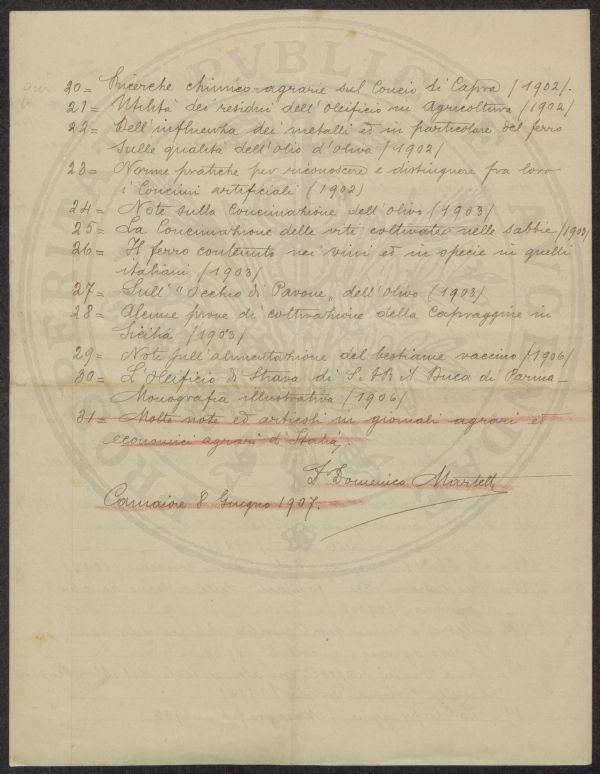 20= Ricerche chimico-agrarie sul Concio di Capra /1902/.
21= Utilità dei residui dell'Oleificio in Agricoltura /1902/
22= Dell'influenza dei metalli ed in particolare del ferro
sulle qualità dell'olio d'oliva /1902/
23= Norme pratiche per riconoscere e distinguere fra loro
i Concimi artificiali /1902/
24= Note sulla Concimazione dell'olivo /1903/
25= La Concimazione delle viti coltivate nelle sabbie /1903/
26= Il ferro contenuto nei vini ed in specie in quelli
italiani /1903/
27= Sull' "Occhio di Pavone" dell'Olivo /1903/
28= Alcune prove di coltivazione della Capraggine in
Sicilia /1903/
29= Note sull'alimentazione del bestiame vaccino /1906/
30= L'Oleificio di Strava di S. A. R. il Duca di Parma_
Monografia illustrativa /1906/
31= Molte note ed articoli in giornali agrari ed
economici agrari d'Italia.
F. Domenico Martelli
Camaiore 8 Giugno 1907.